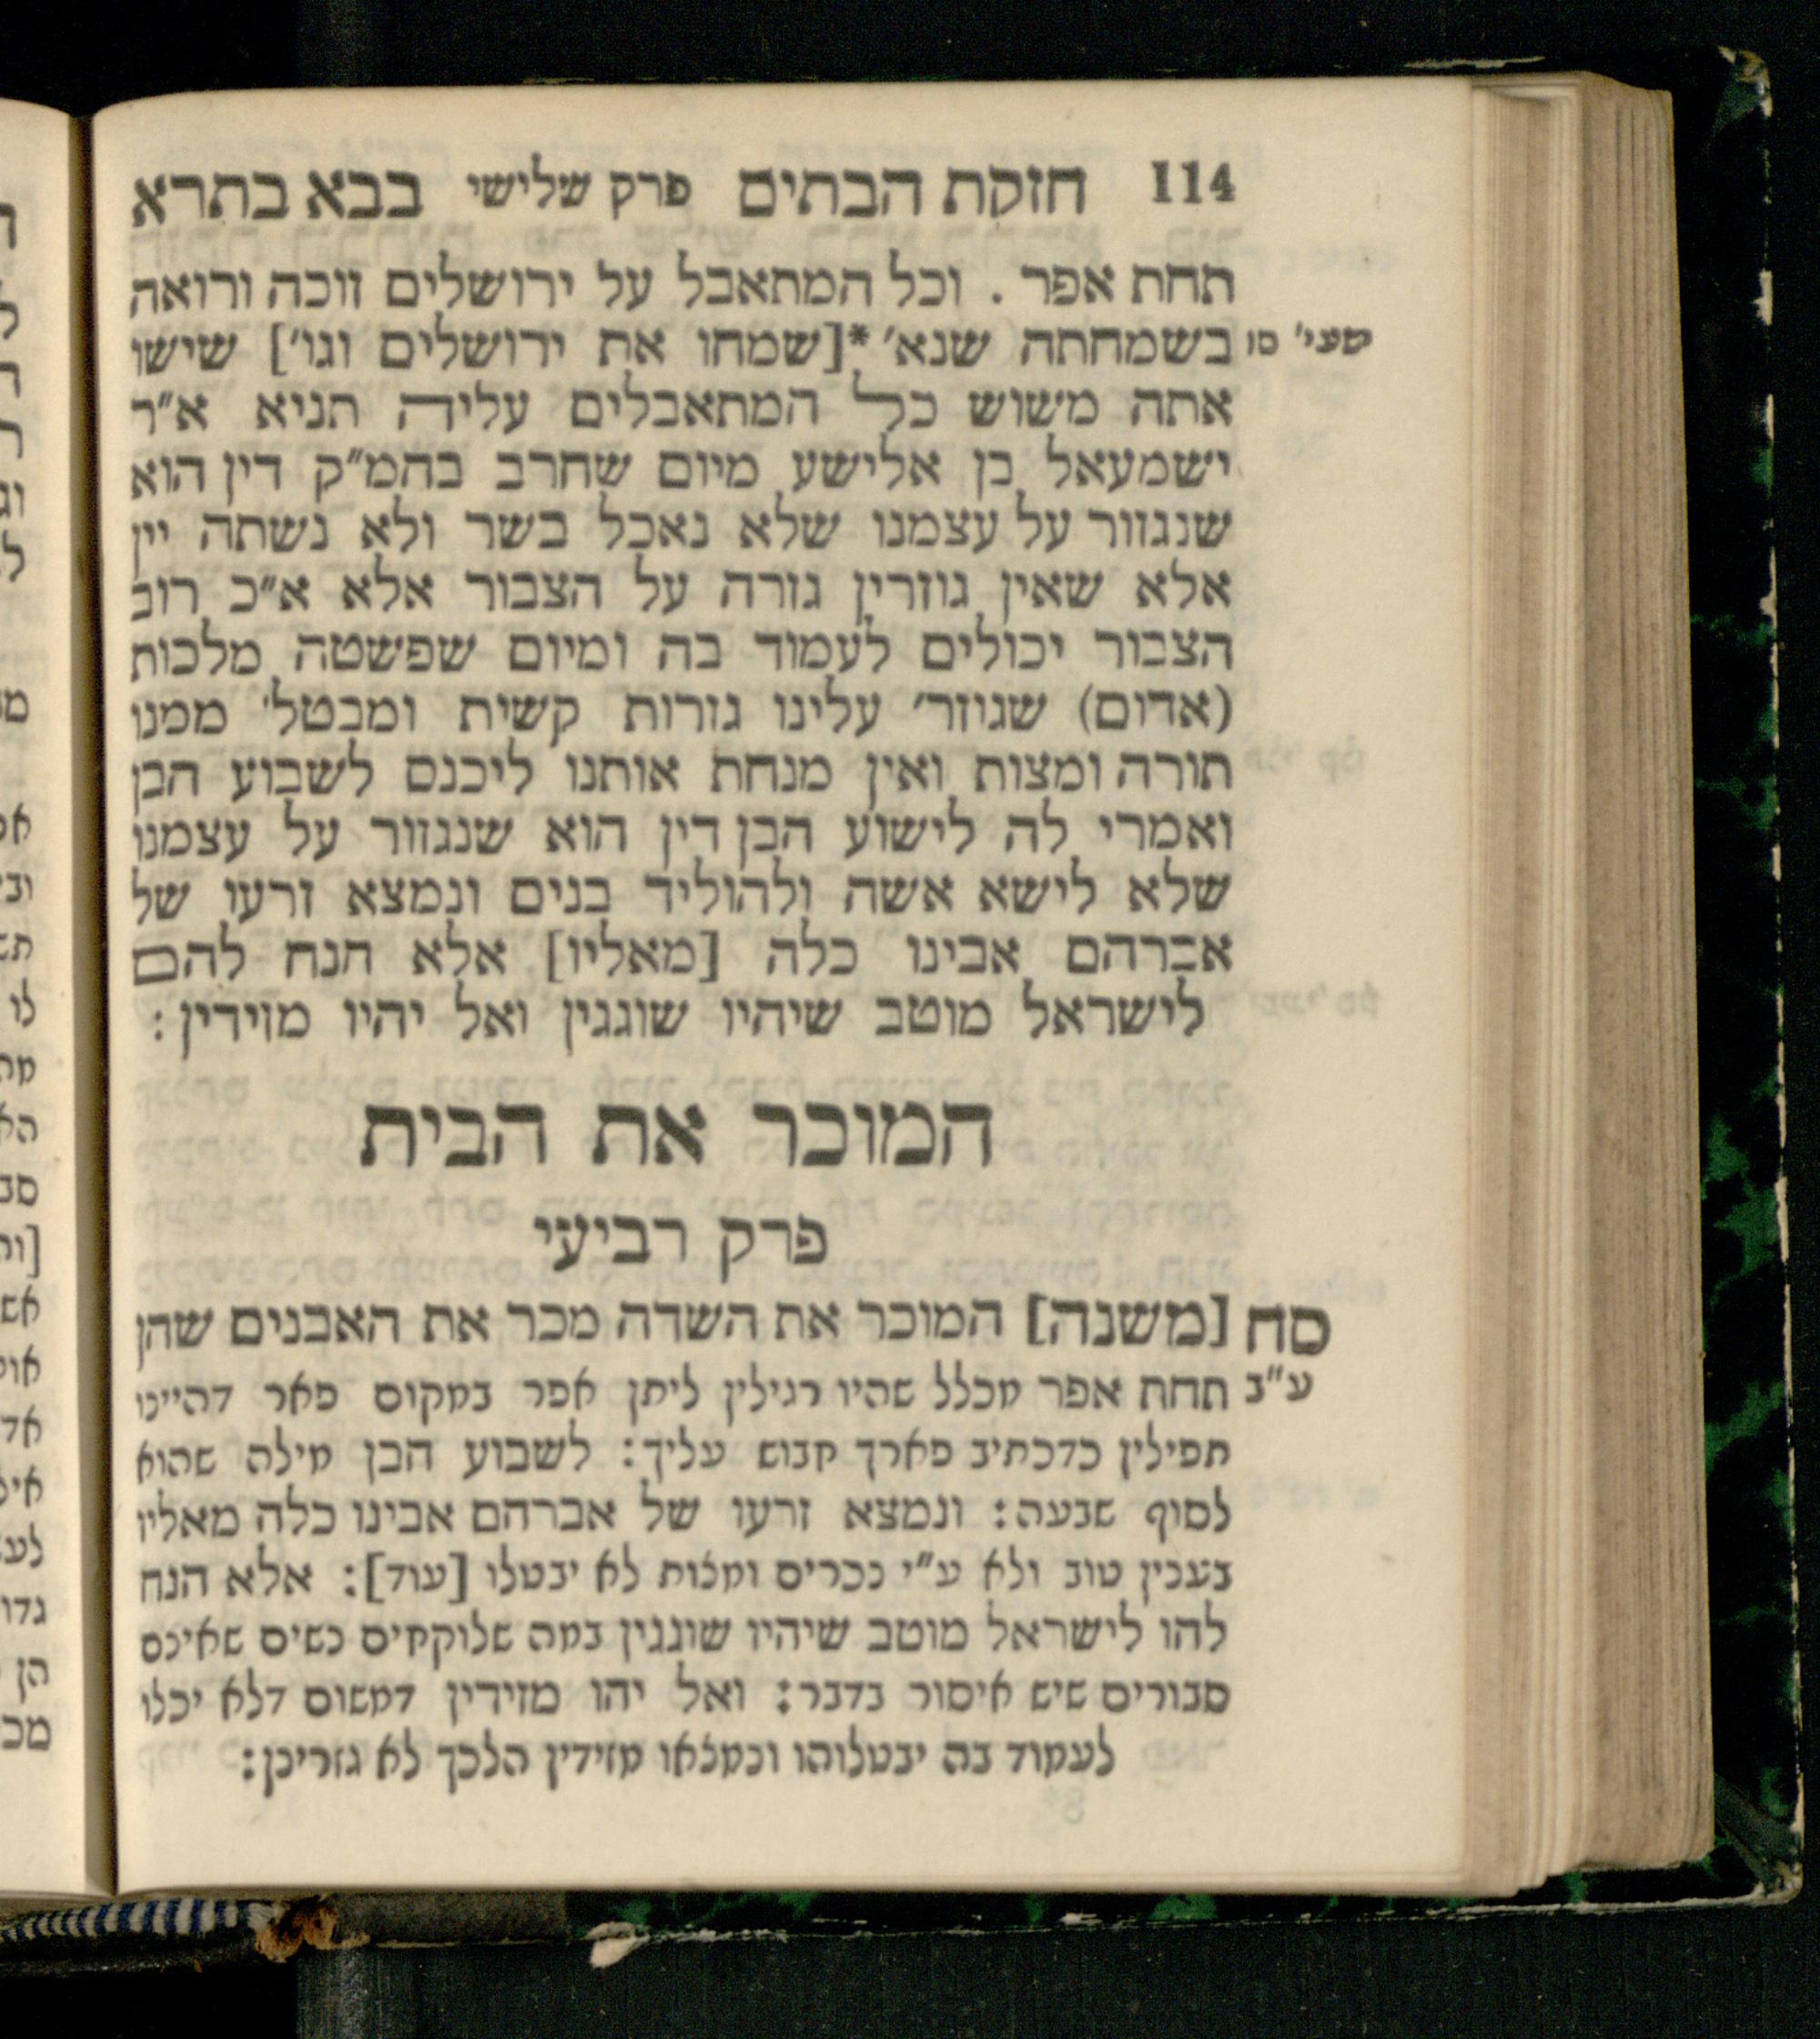 114 חזקת הבתים פרק שלישי בבא בתרא
תחת אפר . וכל המתאבל על ירושלים זוכה ורואה
ישעי' סו בשמחתה שנא' *[שמחו את ירושלים וגו'] שישו
אתה משוש כל המתאבלים עליה תניא א"ר
ישמעאל בן אלישע מיום שחרב בהמ"ק דין הוא
שנגזור על עצמנו שלא נאכל בשר ולא נשתה יין
אלא שאין גוזרין גזרה על הצבור אלא א"כ רוב
הצבור יכולים לעמוד בה ומיום שפשטה מלכות
(אדום) שגוזר' עלינו גזרות קשית ומבטל' ממנו
תורה ומצות ואין מנחת אותנו ליכנס לשבוע הבן
ואמרי לה לישוע הבן דין הוא שנגזור על עצמנו
שלא לישא אשה ולהוליד בנים ונמצא זרעו של
אברהם אבינו כלה [מאליו] אלא הנח להם
לישראל מוטב שיהיו שוגגין ואל יהיו מזידין :
המוכר את הבית
פרק רביעי
סח [משנה] המוכר את השדה מכר את האבנים שהן
ע"ב תחת אפר מכלל שהיו רגילין ליתן אפר במקום פאר דהיינו
תפילין כדכתיב פארך חבוש עליך: לשבוע הבן מילה שהוא
לסוף שבעה: ונמצא זרעו של אברהם אבינו כלה מאליו
בענין טוב ולא ע"י נכרים ומצות לא יבטלו [עוד]: אלא הנח
להו לישראל מוטב שיהיו שוגגין במה שלוקחים נשים שאינם
סבורים שיש איסור בדבר: ואל יהו מזידין דמשום דלא יכלו
לעמוד בה יבטלוהו ונמצאו מזידין הלכך לא גזרינן: